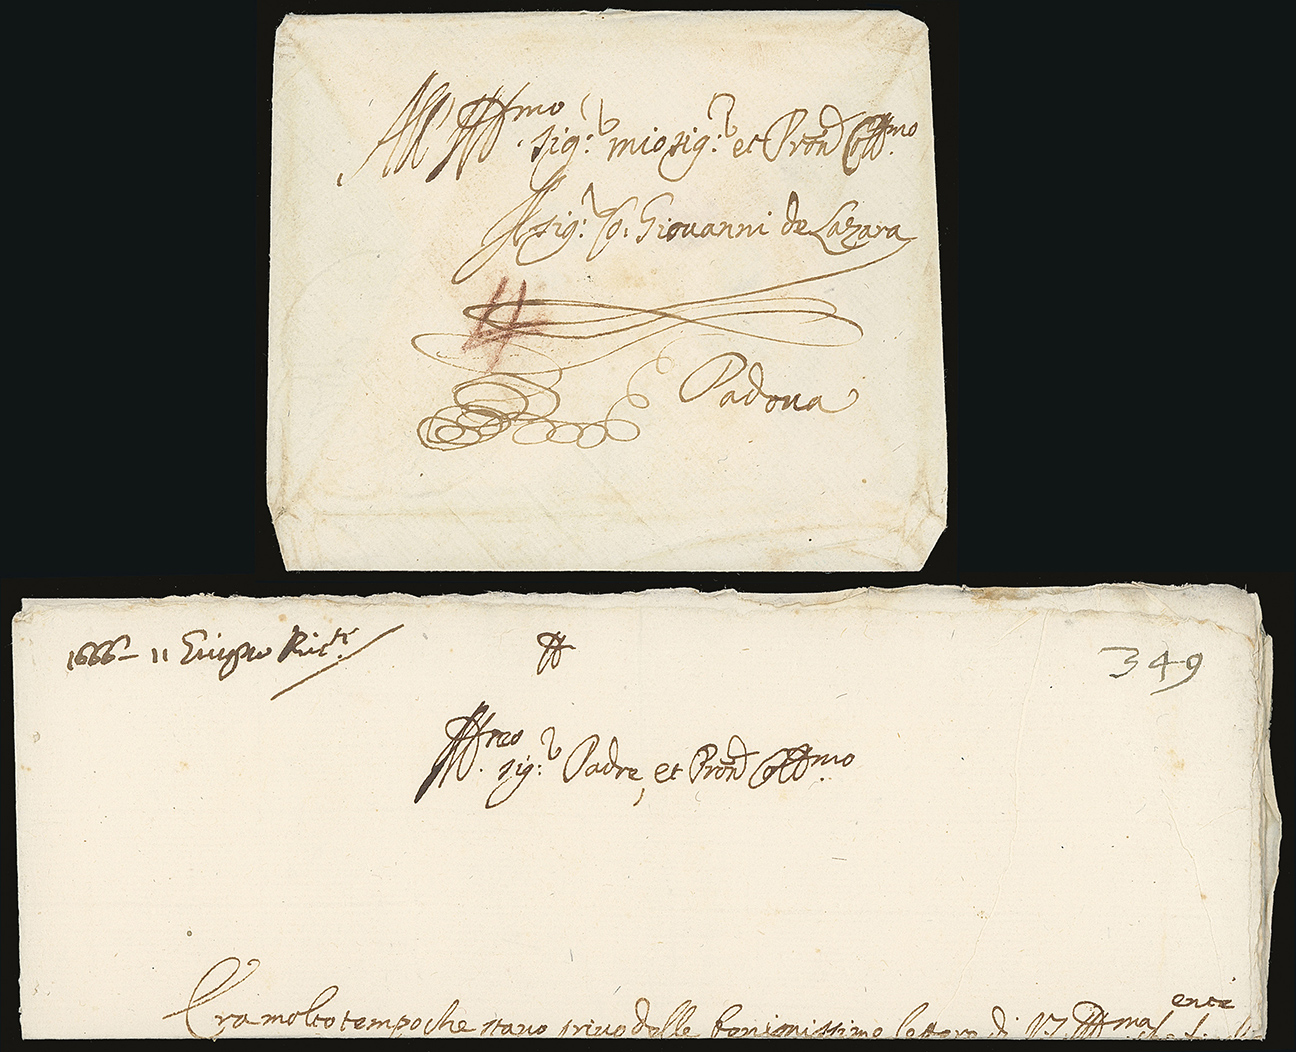 All' Ill.mo sig.r mio sig.r et Pron Coll.mo
Il sig.r Co. Giovanni de Lazara
4
Padova
1666 - 11
349
Ill.mo sig.r Padre, et Pron Coll.mo
Era molto tempo che stavo privo delle lettere di V.S. Ill.ma